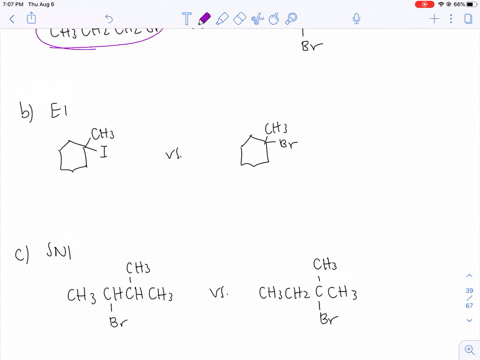 7:07 PM Thu Aug 6
66%
CH3 CH2 CH2 Br
Br
b) E1
CH3
I
vs.
CH3
Br
39
/
67
c) SN1
CH3
CH3 CHCHCH3
Br
vs.
CH3
CH3CH2 C CH3
Br